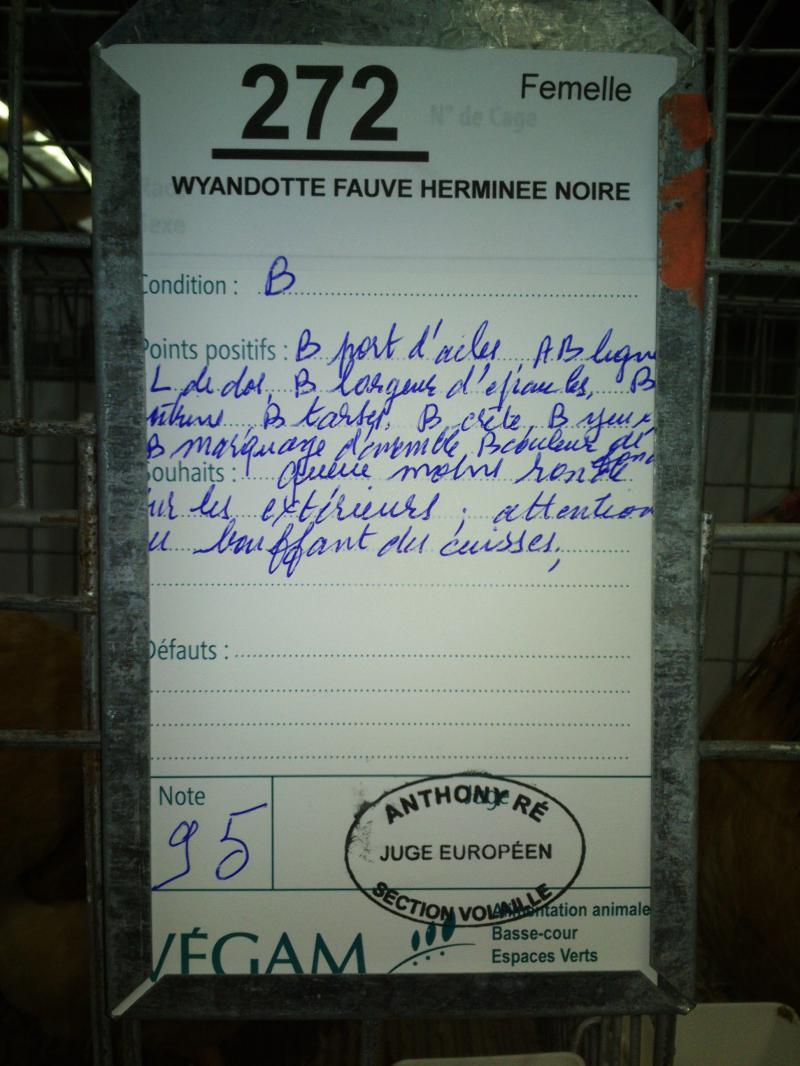 272
Femelle
N° de Cage
WYANDOTTE FAUVE HERMINEE NOIRE
exe
Condition : B
Points positifs : B port d'ailes AB lign
L de dos, B largeur d'épaules, B
B tarses, B crête, B yeux
B marquage d'ensemble B couleur de
fond
Souhaits : queue moins ronde
ur les extérieurs ; attention
u bouffant des cuisses,
Défauts :
Note
95
Juge
ANTHONY RÉ
JUGE EUROPÉEN
SECTION VOLAILLE
VÉGAM
Alimentation animale
Basse-cour
Espaces Verts